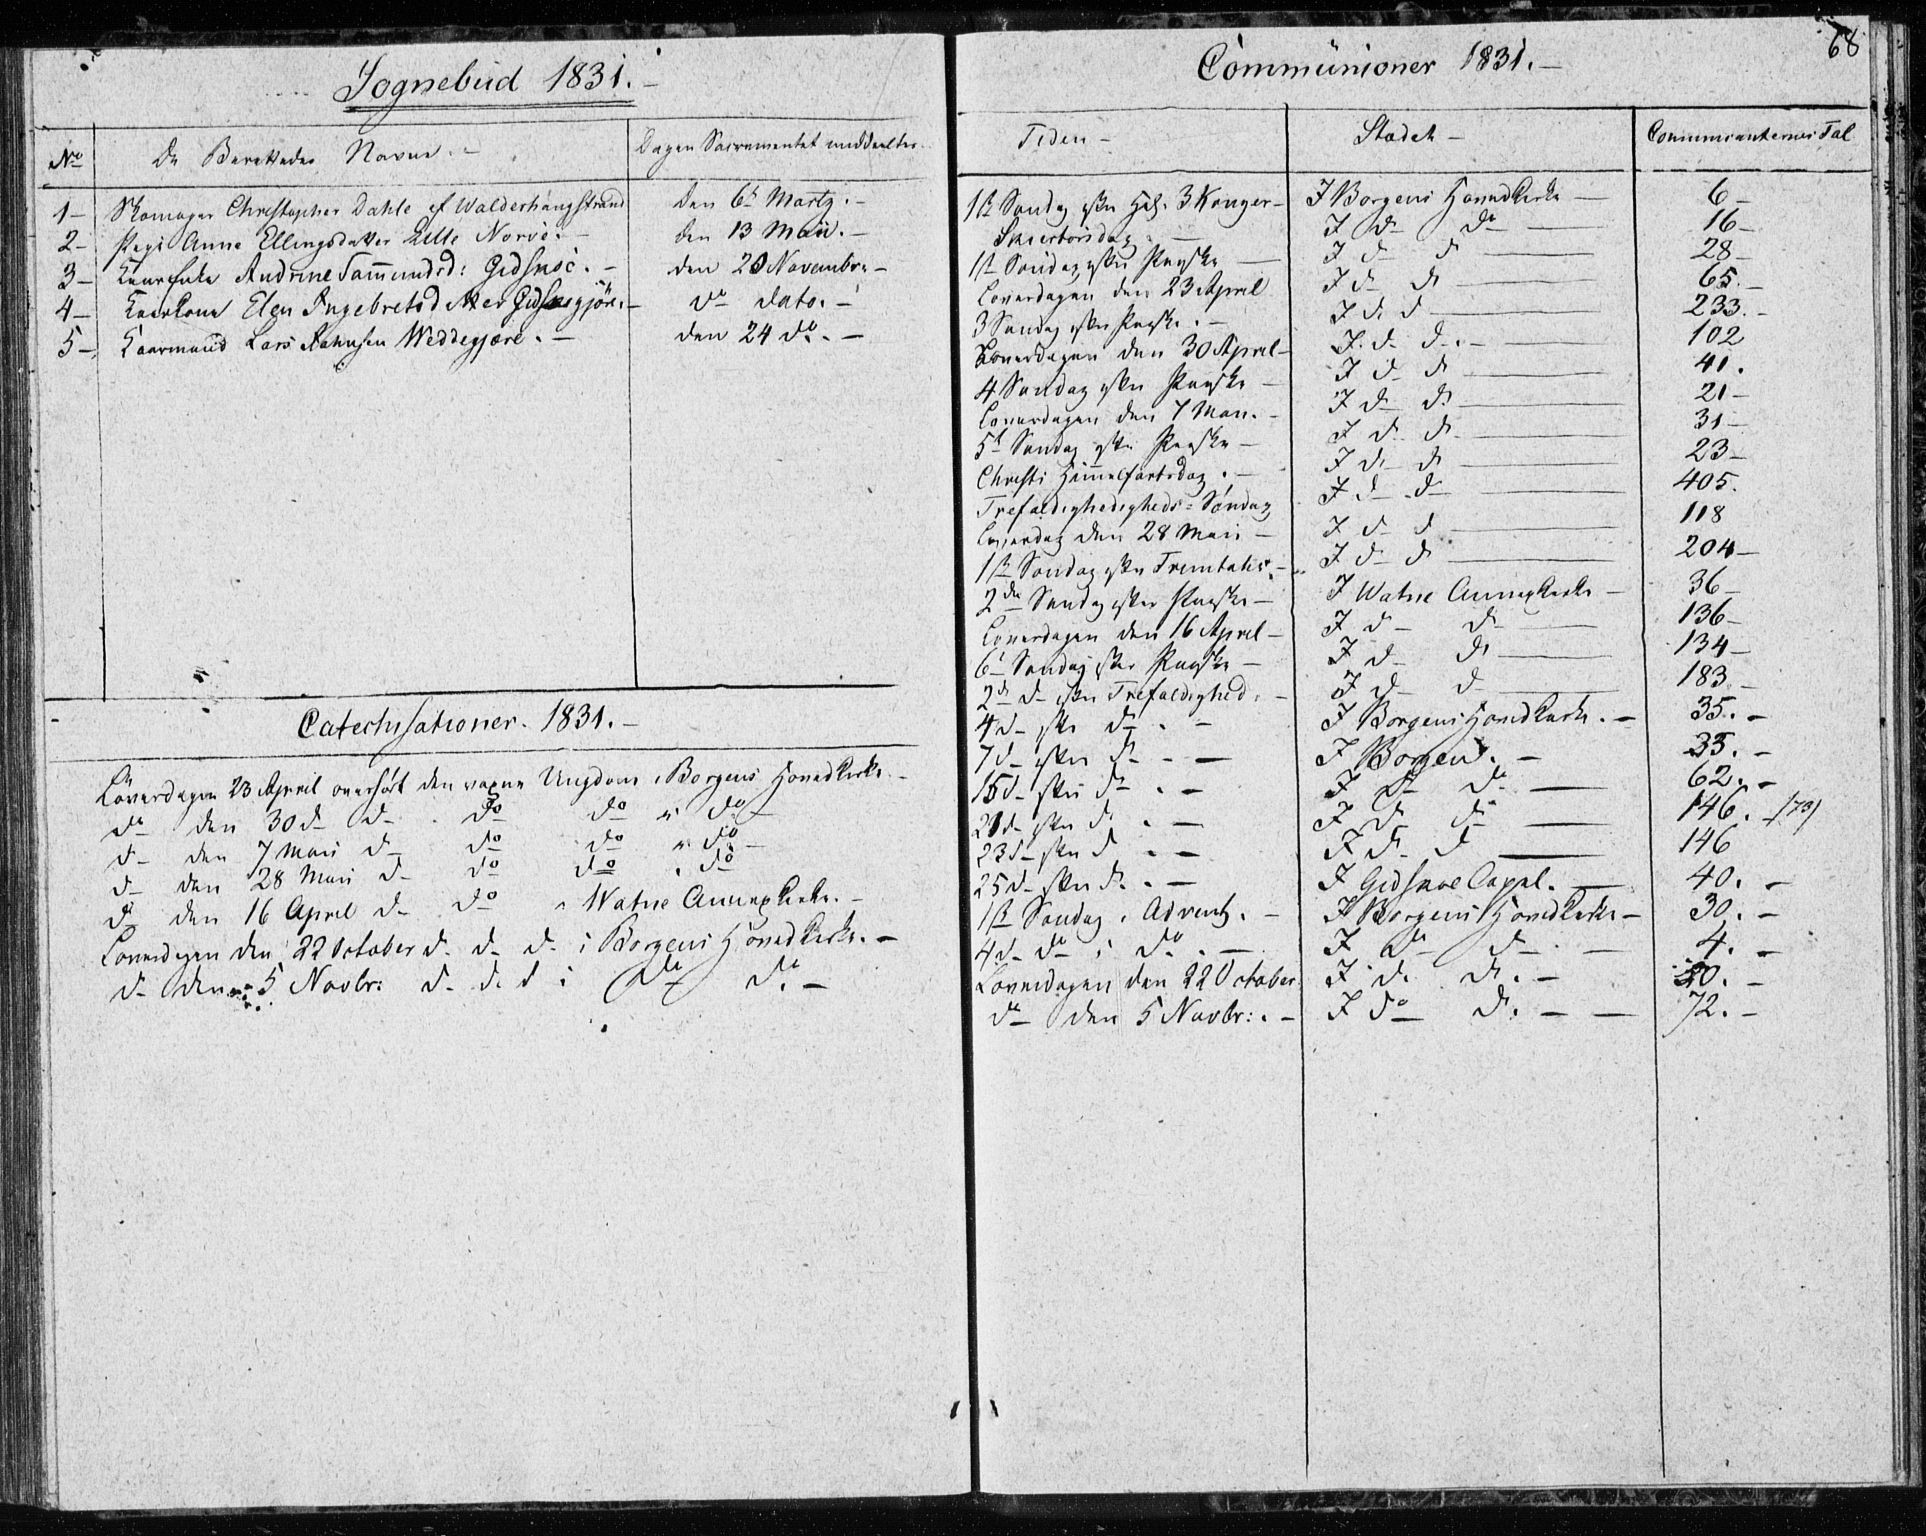 Sognebud 1831. –
No De Berettedes Navne. – Dagen Sacramentet meddeeltes
1 – Skomager Christopher Dahle af Walderhaugstrand den 6te Martz. –
2 – Pige Anne Ellingsdatter Lille Norve. – den 13 Maii. –
3 – Andrine Sammundsd: Gidskoe. – den 20 Novembr. –
4 – Kaarkone Elen Ingebretsdatter Gidskegjøre. – do dato. –
5 – Kaarmand Lars Weddegjære. – den 24 do. –
Catechisationer. 1831. –
Løverdagen 23 April overhørt den voxne Ungdom i Borgens Hovedkirke. –
do den 30 d– d– do do i do –
d– den 7 Maii d– do do i do –
d– den 28 Maii d– do do i do
d– den 16 April d– do i Watne Annexkirke. –
Løverdagen den 22 October d. d. d. i Borgens Hovedkirke. –
d– den 5 Novbr: d. d. d i do do –
68
Communioner 1831. –
Tiden – Stædet – Communicanternes Tal
1ste Søndag efter Hel. 3 Konger – I Borgens Hovedkirke – 6 –
Skiertorsdag – I d– do – 16 –
1ste Søndag efter Paaske – I d– d – 28 –
Løverdagen den 23 April I d– d – 65. –
3 Søndag efter Paaske. – I d. d – 233. –
Løverdagen den 30 April – I. d– d. – 102
4 Søndag efter Paaske – I d d – 41.
Løverdagen den 7 Maii. – I d– d. – 21 –
5te Søndag efter Paaske – I d. d. – 31 –
Christi Himmelfartsdag. – I d– d – 23 –
Trefoldighedigheds-Søndag I d– d – 405.
Løverdag den 28 Maii – I d– d – 118
1ste Søndag efter Trinitatis. – I d– d – 204 –
2den Søndag efter Paaske – I Watne Annexkirke – 36 –
Løverdagen den 16 April – I d– d – 136 –
6te Søndag efter Paaske – I d– d – 134 –
2den d– efter Trefoldighed. – I d– d – 183. –
4 d– efter do. – I Borgens Hovedkirke. – 35. –
7 d– efter d– . – I Borgens. – 35. –
15 d– efter d– . – I do do. – 62. –
21 d– efter d . – I d. d – 146. –
23 d– efter d . – I d. d – 146
25 d– efter d. . – I Gidskoe Capel. – 40. –
1ste Søndag i Advent. – I Borgens Hovedkirke – 30. –
4 d– do i do. – I do d – 4. –
Løverdagen den 22 October I d. d. – 20. –
do den 5 Novbr: . – I do d. – 72. –